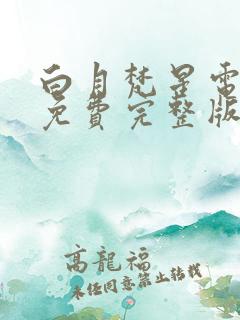 白月梵星電
免費完整版
高龍福
未任同意禁止轉載